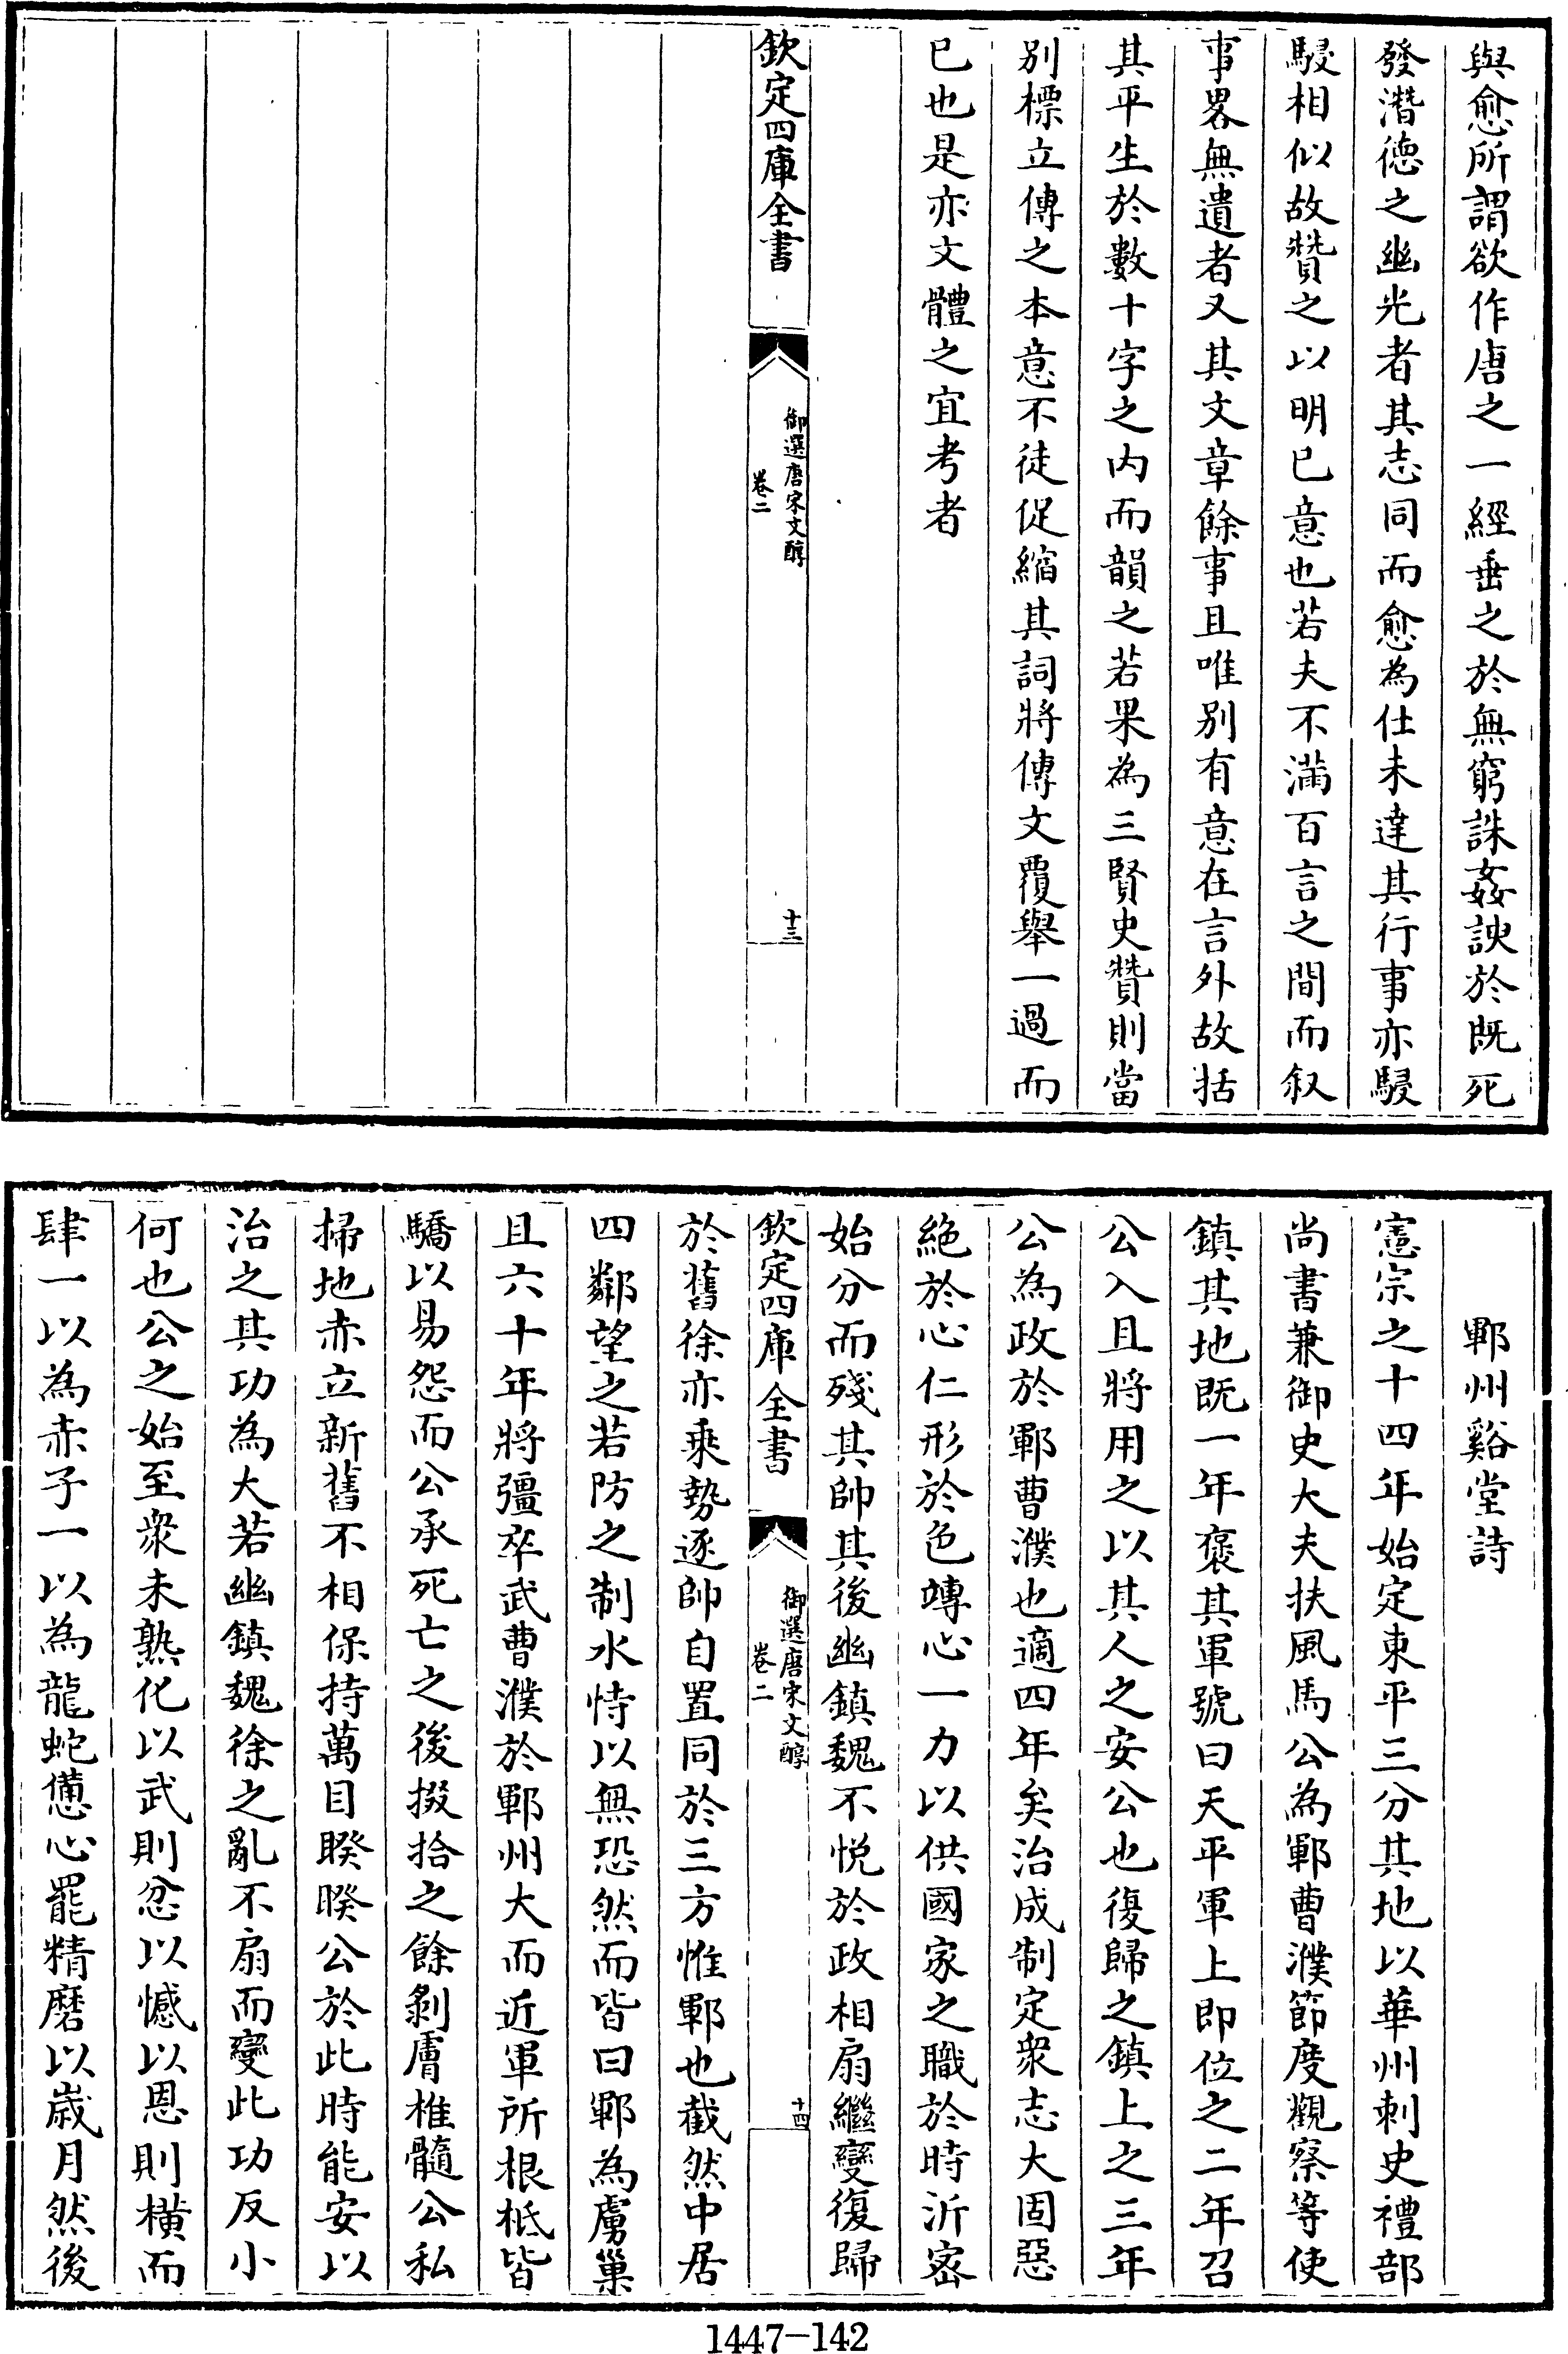 與愈所謂欲作唐之一經垂之於無窮誅姦諛於既死
發潛德之幽光者其志同而愈為仕未達其行事亦駸
駸相似故贊之以明已意也若夫不滿百言之間而叙
事畧無遺者又其文章餘事且唯别有意在言外故括
其平生於數十字之内而韻之若果為三賢史贊則當
别標立傳之本意不徒促縮其詞將傳文覆舉一過而
已也是亦文體之宜考者
欽定四庫全書
御選唐宋文醇
卷二
十三
鄆州谿堂詩
憲宗之十四年始定東平三分其地以華州刺史禮部
尚書兼御史大夫扶風馬公為鄆曹濮節度觀察等使
鎮其地既一年褒其軍號曰天平軍上即位之二年召
公入且將用之以其人之安公也復歸之鎮上之三年
公為政於鄆曹濮也適四年矣治成制定衆志大固惡
絶於心仁形於色竱心一力以供國家之職於時沂密
始分而殘其帥其後幽鎮魏不悦於政相扇繼變復歸
於舊徐亦乘勢逐帥自置同於三方惟鄆也截然中居
欽定四庫全書
御選唐宋文醇
卷二
十四
四鄰望之若防之制水恃以無恐然而皆曰鄆為虜巢
且六十年將彊卒武曹濮於鄆州大而近軍所根柢皆
驕以易怨而公承死亡之後掇拾之餘剝膚椎髓公私
掃地赤立新舊不相保持萬目睽睽公於此時能安以
治之其功為大若幽鎮魏徐之亂不扇而變此功反小
何也公之始至衆未熟化以武則忿以憾以恩則横而
肆一以為赤子一以為龍蛇憊心罷精磨以嵗月然後
1447-142